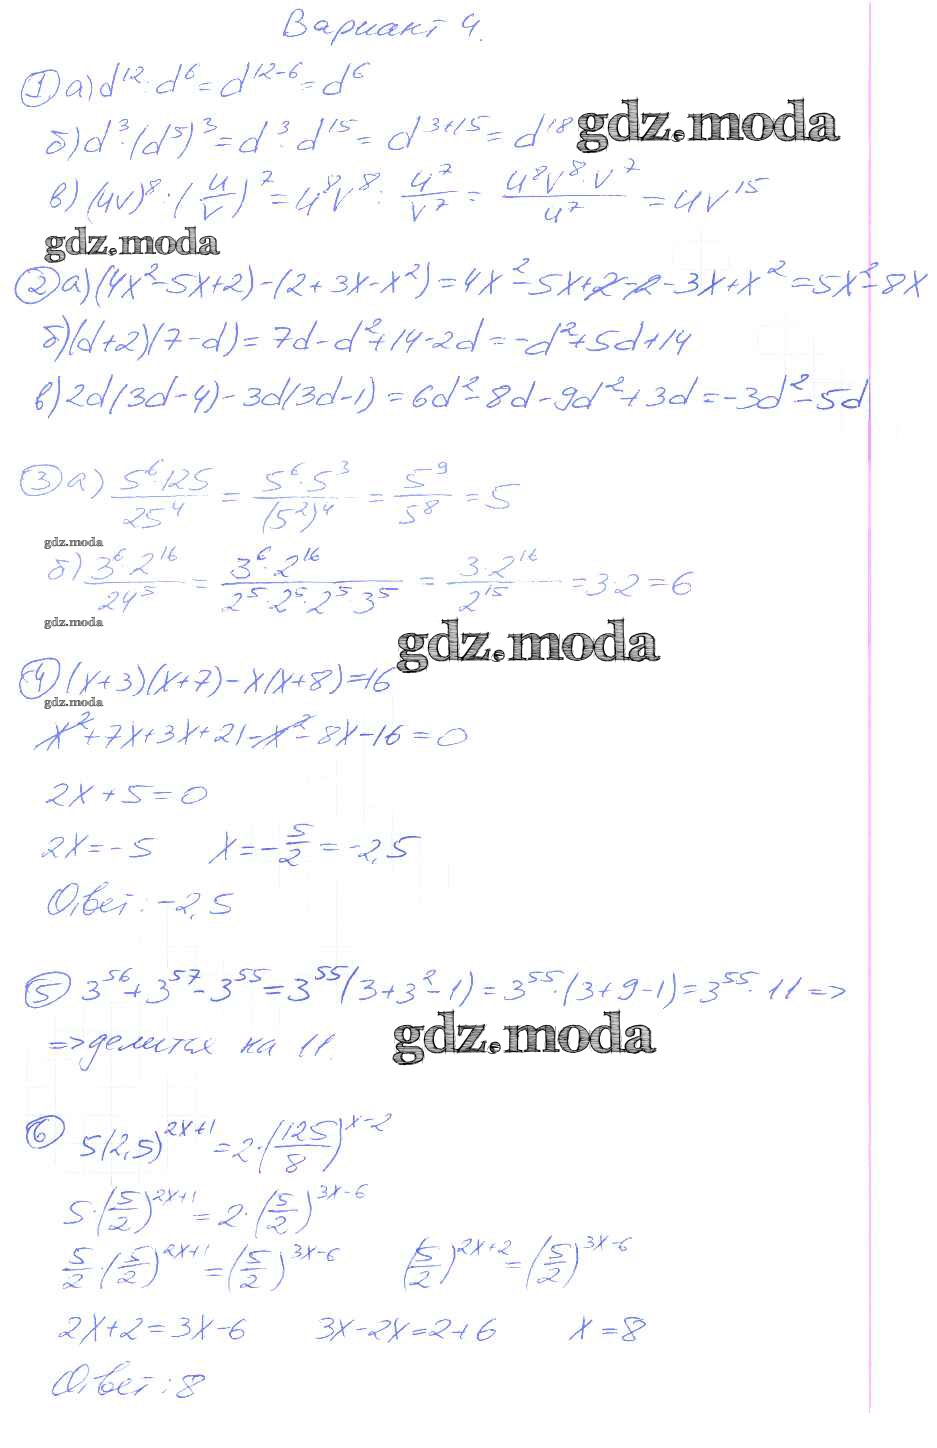 Вариант 4.
① а) d^12 : d^6 = d^(12-6) = d^6
б) d^3·(d^5)^3 = d^3·d^15 = d^(3+15) = d^18
gdz.moda
в) (uv)^8 : (u/v)^7 = u^8v^8 : u^7/v^7 = u^8v^8·v^7/u^7 = uv^15
gdz.moda
② а) (4x^2-5x+2)-(2+3x-x^2) = 4x^2-5x+2-2-3x+x^2 = 5x^2-8x
б) (d+2)(7-d) = 7d-d^2+14-2d = -d^2+5d+14
в) 2d(3d-4)-3d(3d-1) = 6d^2-8d-9d^2+3d = -3d^2-5d
③ а) 5^6·125/25^4 = 5^6·5^3/(5^2)^4 = 5^9/5^8 = 5
gdz.moda
б) 3^6·2^16/24^5 = 3^6·2^16/2^5·2^5·2^5·3^5 = 3·2^16/2^15 = 3·2 = 6
gdz.moda
gdz.moda
④ (x+3)(x+7)-x(x+8)=16
gdz.moda
x^2+7x+3x+21-x^2-8x-16=0
2x+5=0
2x=-5 x=-5/2=-2,5
Ответ: -2,5
⑤ 3^56+3^57-3^55 = 3^55(3+3^2-1) = 3^55·(3+9-1) = 3^55·11 =>
=> делится на 11.
gdz.moda
⑥ 5(2,5)^(2x+1) = 2·(125/8)^(x-2)
5·(5/2)^(2x+1) = 2·(5/2)^(3x-6)
5/2·(5/2)^(2x+1) = (5/2)^(3x-6) (5/2)^(2x+2) = (5/2)^(3x-6)
2x+2=3x-6 3x-2x=2+6 x=8
Ответ: 8